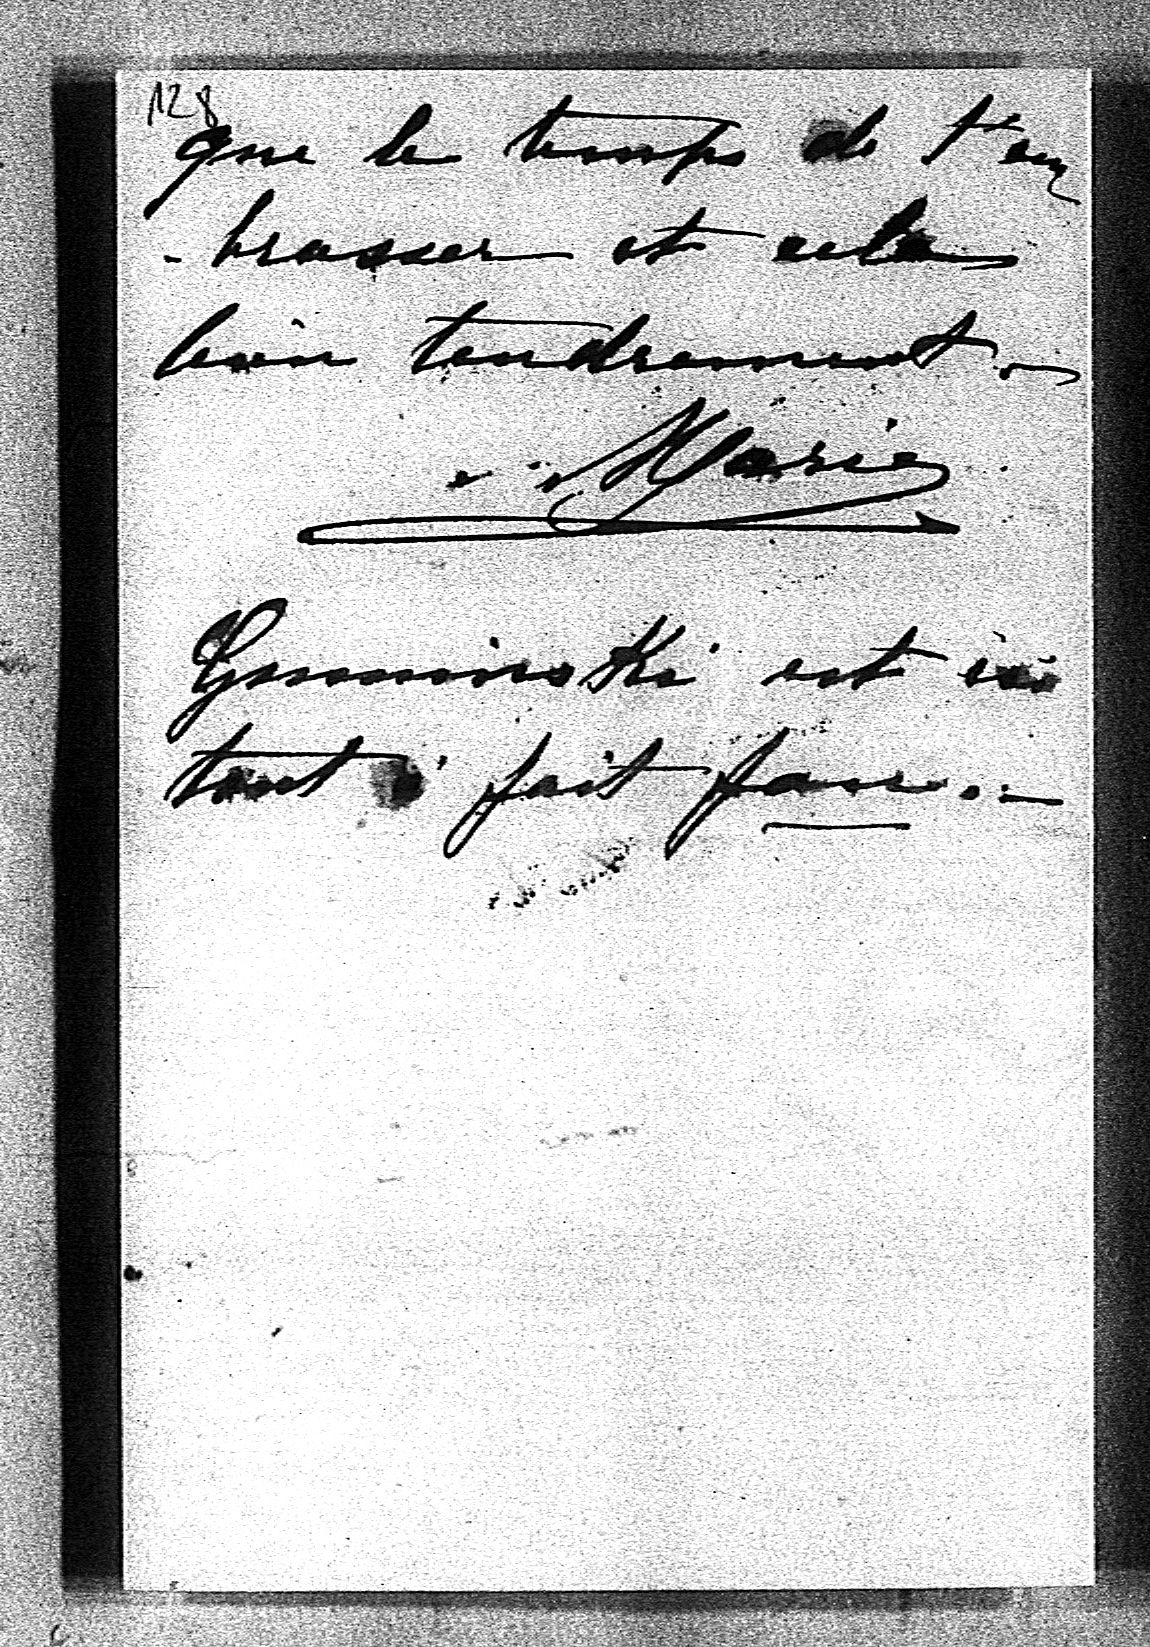 128
que le temps de t'em
-brasser et cela
bien tendrement.—
Marie
est ici
tout à fait